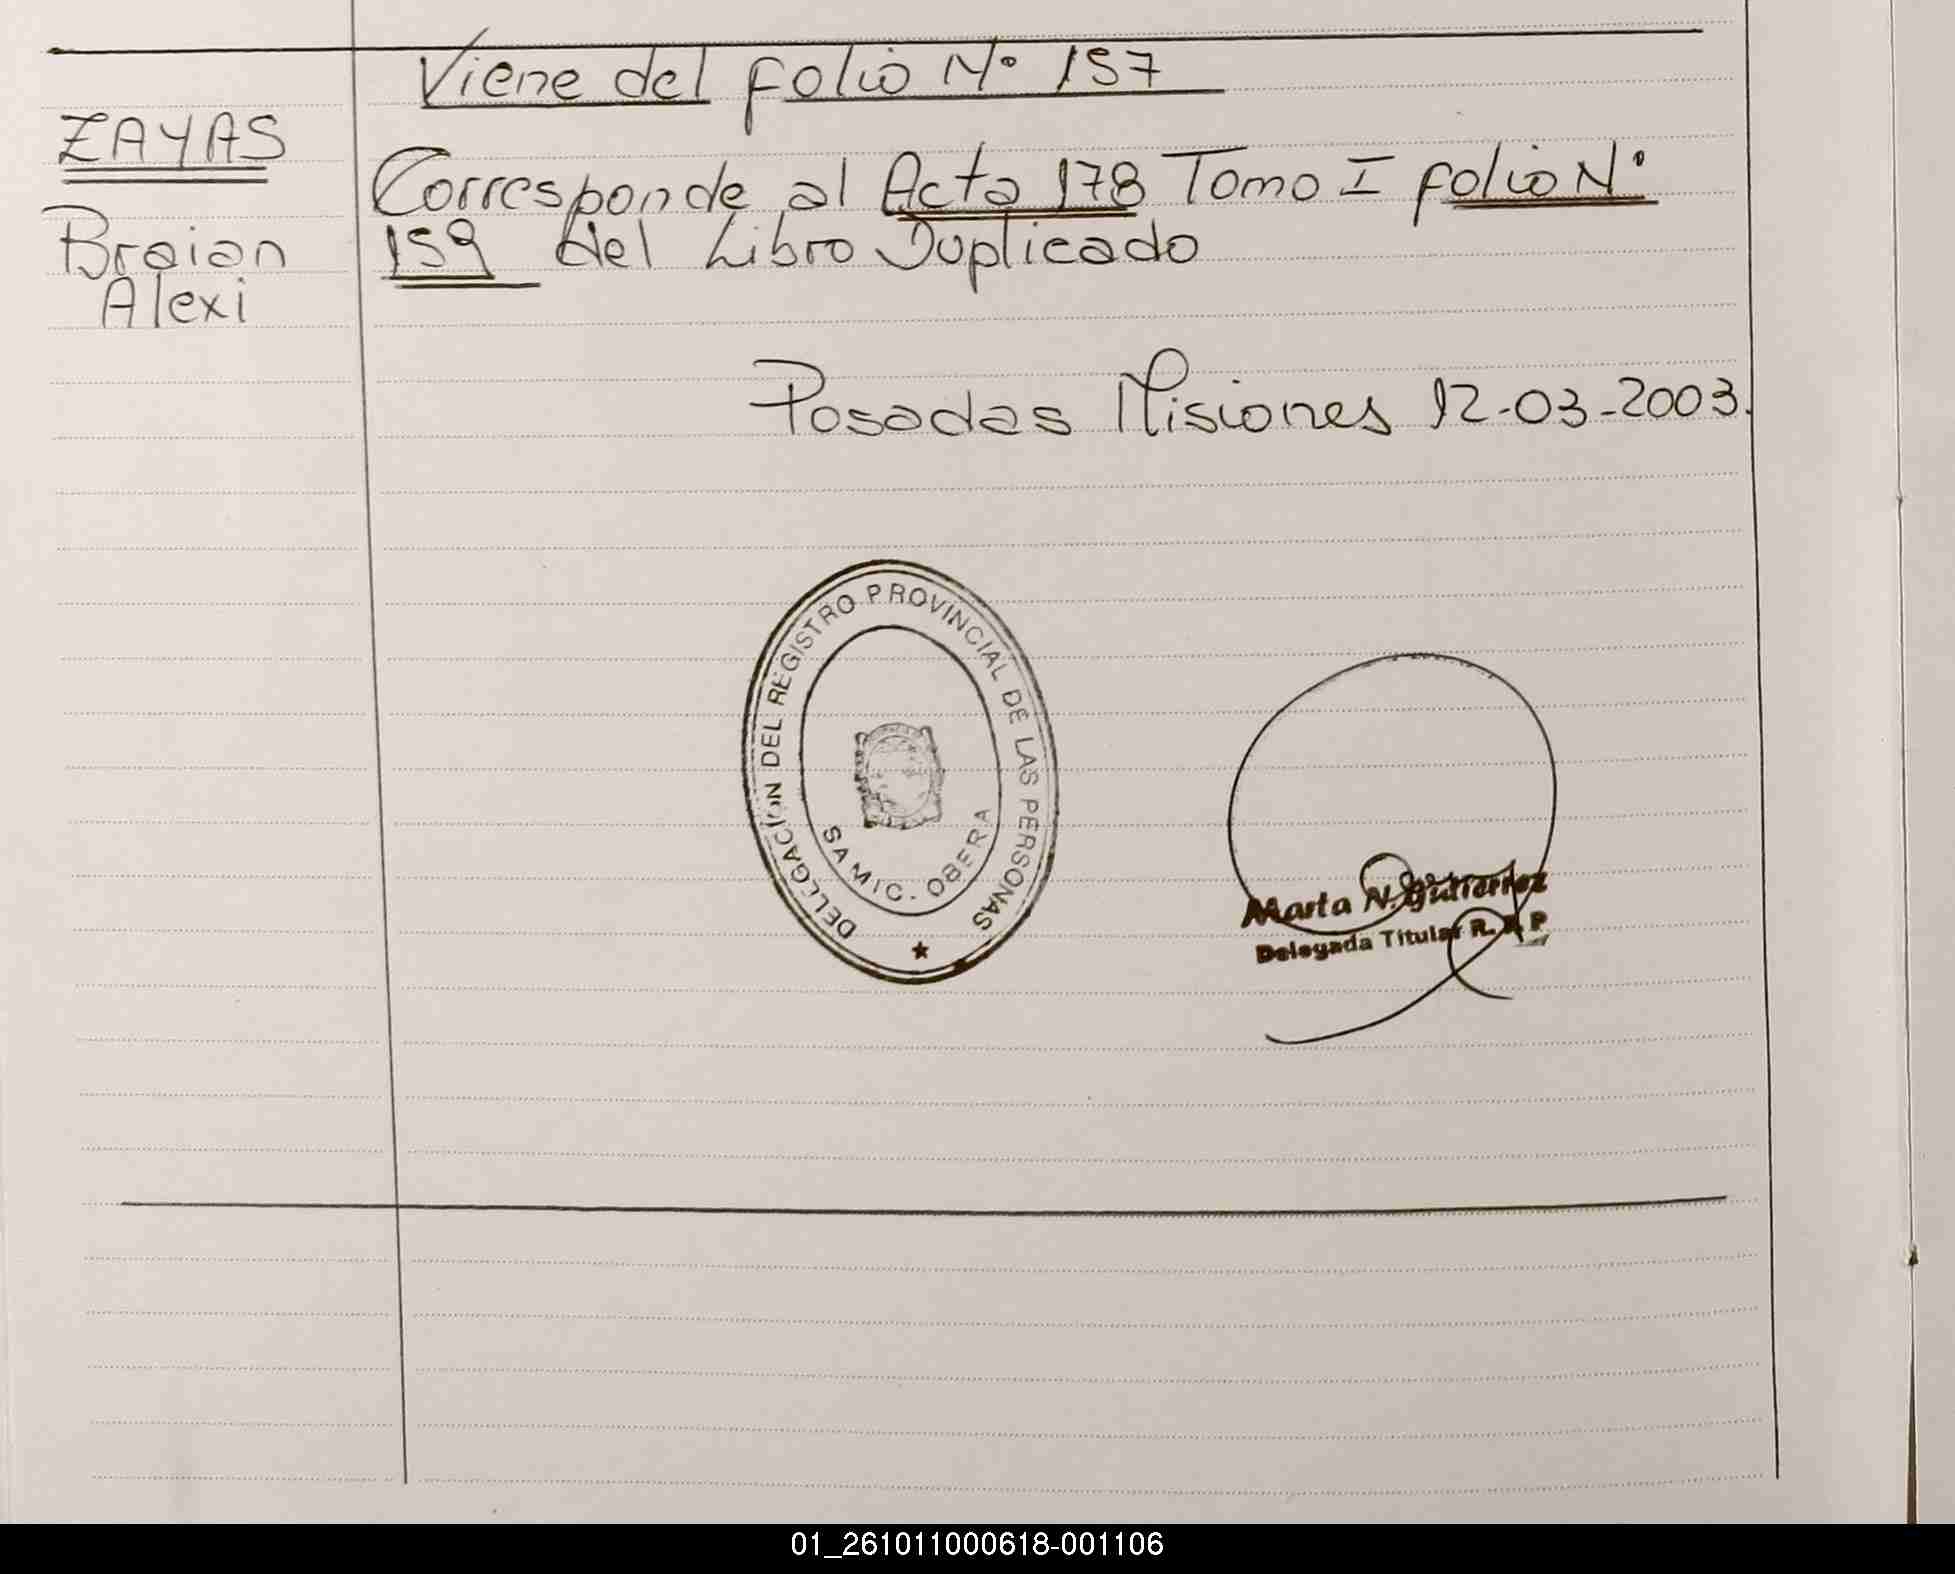 Viene del folio N° 157
ZAYAS
Braian
Alexi
Corresponde al Acta 178 Tomo I folio N°
159 del Libro Duplicado
Posadas Misiones 12-03-2003.
DELEGACION DEL REGISTRO PROVINCIAL DE LAS PERSONAS
SAMIC. OBERA
Marta N. Gutierrez
Delegada Titular R. P. P
01_261011000618-001106